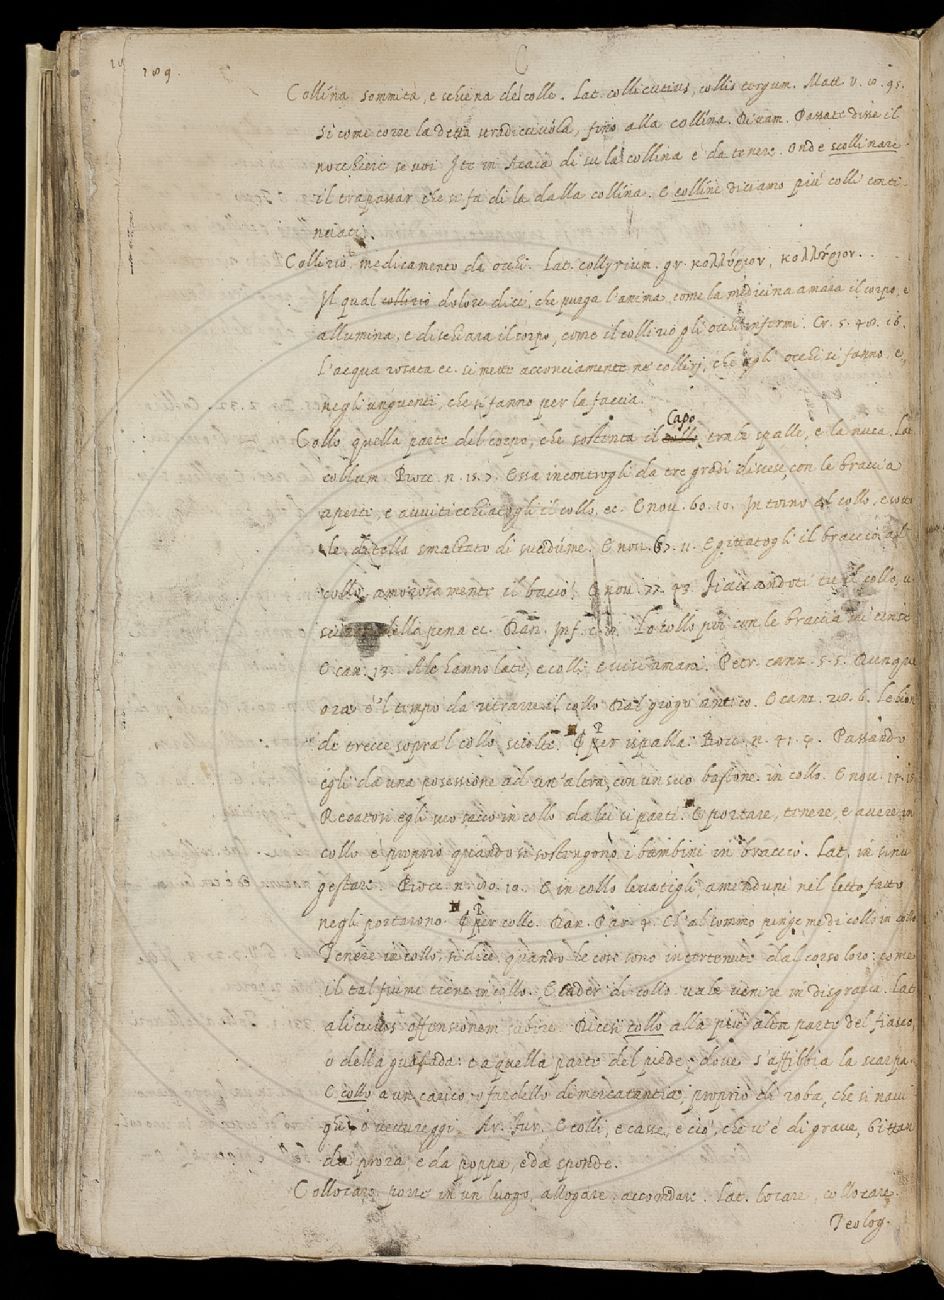 C
289.
Collína sommità, e schiena del colle. Lat. collis tergum. Matt. V. 8. 95.
Si come corre la detta, fino alla collína. Passat. disse il
nocchiere se voi Ite in Acaia di su la collina è da tenere. Onde scollinare
il trapassar che si fa di la dalla collína. E collíne diciamo più colli conti-
nuati.
Collirio. medicamento da occhi. Lat. collyrium. gr. κολλύριον, κολλύριον.
Il qual collirio dolore dice, che purga l'anima, come la medicina amara il corpo, e
allumina, e dischiara il corpo, come il collirio gli occhi infermi. Cr. 5. 48. 16.
L'acqua rosata ec. si mette acconciamente ne' collirj, che agli occhi si fanno, e,
negli unguenti, che si fanno per la faccia.
Collo quella parte del corpo, che sostenta il collo Capo, tra le spalle, e la nuca. Lat.
collum. Bocc. n. 15. 7. Essa incontrogli da tre gradi discese, con le braccia
aperte, e avviticchiatogli il collo, ec. E nov. 60. 10. Intorno al collo, e sotto
le ditella smaltato di sucidúme. E nov. 67. 11. E gittatogli il braccio al
collo, amorosamente il baciò. E nov. 77. 43. Fiaccandoti tu il collo, u
della pena ec. Dan. Inf. Lo collo poi con le braccia mi cinse
E can. 13. Ale hanno late, e colli e visi umani. Petr. canz. 5. 5. Dunque
ora è 'l tempo da ritrarre il collo Dal giogo antico. E canz. 28. 6. Le bion
de trecce sopra 'l collo sciolte. ¶ per ispalla. Bocc. n. 41. 9. Passando
egli da una posessione ad un' altra, con un suo bastone in collo. E nov.
Recatosi egli suo sacco in collo da lei si partì. E portare, tenere, e avere in
collo è proprio quando si sostengono i bambini in braccio. Lat. in sinu
gestare. Bocc. n. 80. 10. E in collo levatigli, amenduni nel letto fatto
negli portarono. ¶ per colle. Dan. Par. 4. Ch' al sommo pinge noi di collo in collo
Tenere in collo, si dice, quando le cose sono intertenute dal corso loro: come
il tal fiume tiene in collo. E cader di collo vale venire in disgrazia. Lat.
alicuius offensionem subire. Dicesi collo alla più alta parte del fiasco,
o della guastada: e a quella parte del piede, dove s'affibbia la scarpa.
E collo a un carico, o fardello di mercatantia, proprio di roba, che si navi
ghi, o vettureggi. Ar. Fur. E colli, e casse, e ciò, che v'è di grave, Gittan
da prora, e da poppa, e da sponde.
Collocare porre in un luogo, allogare, accomdare. Lat. locare, collocare.
Teolog.